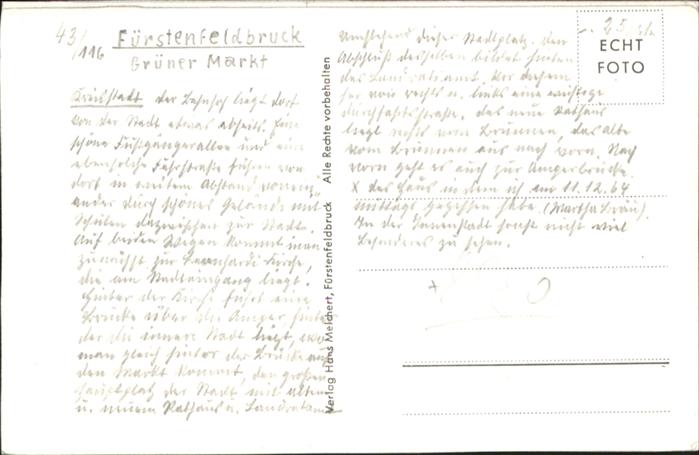 43/116 Fürstenfeldbruck
Grüner Markt
Kreisstadt der Bahnhof liegt dort
von der Stadt etwas abseits. Eine
schöne Fußgängerallee und eine
ebensolche Fahrstraße führen von
dort in weitem Abstand vonein-
ander durch schönes Gelände mit
Schulen dazwischen zur Stadt.
Auf beiden Wegen kommt man
zunächst zur Leonhardi Kirche,
die am Stadteingang liegt.
Hinter der Kirche führt eine
Brücke über die Amper hinter
der die innere Stadt liegt, wo
man gleich hinter der Brücke auf
den Markt kommt, den großen
Hauptplatz der Stadt mit alten
u. neuem Rathaus u. Landratamt
Verlag Hans Melchert, Fürstenfeldbruck Alle Rechte vorbehalten
Umstehend dieser Stadtplatz. den
Abschluß desselben bildet hinten
das Landratsamt. Vor diesem
her von rechts n. links eine wichtige
Durchfahrtsstraße. das neue Rathaus
liegt rechts vom Brunnen, das alte
vom Brunnen aus nach vorn. Nach
vorn geht es auch zur Amperbrücke.
X das Haus in dem ich am 11.12.64
mittags gegessen habe (Martha Bräu)
In der Innenstadt sonst nicht viel
Besonderes zu sehen.
25
ECHT
FOTO